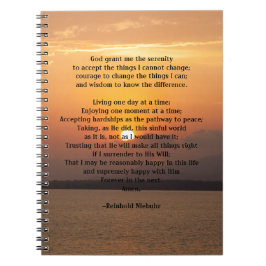 God grant me the serenity
to accept the things I cannot change;
courage to change the things I can;
and wisdom to know the difference.
Living one day at a time;
Enjoying one moment at a time;
Accepting hardships as the pathway to peace;
Taking, as He did, this sinful world
as it is, not as I would have it;
Trusting that He will make all things right
if I surrender to His Will;
That I may be reasonably happy in this life
and supremely happy with Him
Forever in the next.
Amen.
--Reinhold Niebuhr